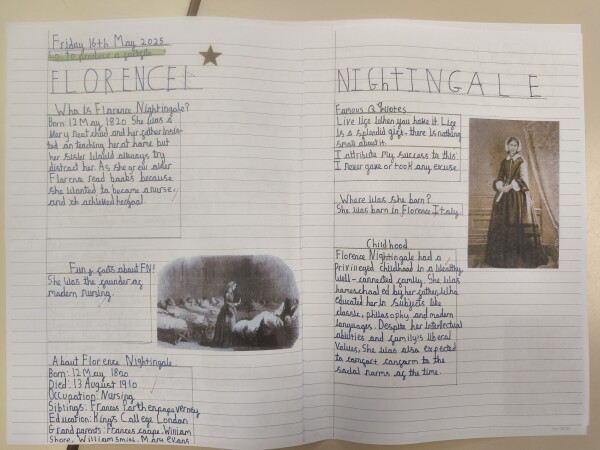 Friday 16th May 2025
to produce a
FLORENCE!
Who Is Florence Nightingale?
Born: 12 May 1820 She was a
Very neat child and her father insis-
ted on teaching her at home but
her sister Would always try
distract her. As she grew older
Florence read books because
she wanted to became a nurse,
and achieved her goal.
Fun facts about FN!
She was the founder of
modern nursing.
About Florence Nightingale
Born: 12 May 1820
Died: 13 August 1910
Occupation: Nursing
Siblings: Frances Parthenpope verney
Education: King's College London
Grandparents: Frances coape William
Shore, William smith, Mary evans
NIGhtINGALE
Famous Quotes
Live life When you have it Life
Is a splendid gift- there is nothing
small about it.
I attribute my success to this
I never gave or took any excuse
Where was she born?
She was born in Florence Italy
Childhood
Florence Nightingale had a
privileged childhood in a Wealthy,
well-connected family. She was
homeschooled by her father, Who
educated her in subjects like
classic, philosophy and modern
languages. Despite her intellectual
abilities and family's liberal
Values, She was also expected
to comfort conform to the
social norms of the time.